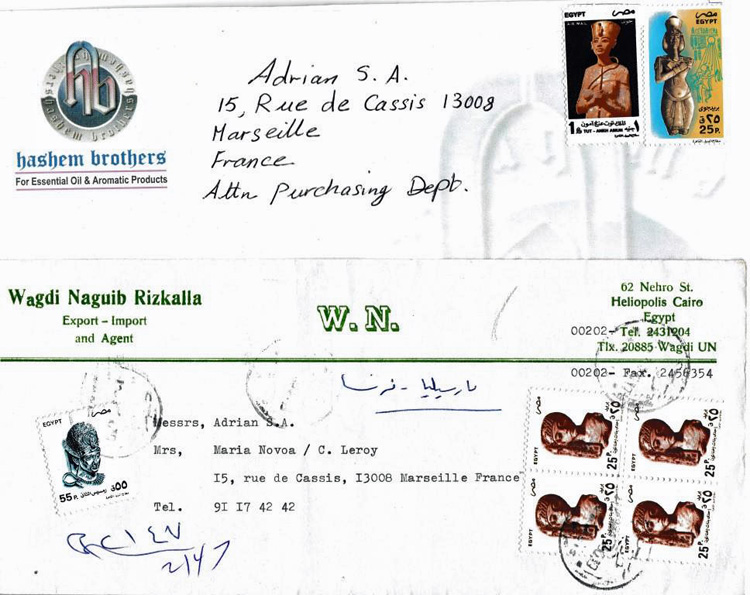 hashem brothers
hashem brothers
For Essential Oil & Aromatic Products
Adrian S. A.
15, Rue de Cassis 13008
Marseille
France
Attn Purchasing Dept.
EGYPT مصر
AIR MAIL
1£
TUT - ANKH AMUN
مصر
EGYPT
٢٥ ق
25 P.
Wagdi Naguib Rizkalla
Export – Import
and Agent
W. N.
62 Nehro St.
Heliopolis Cairo
Egypt
00202- Tel. 2431204
Tlx. 20885 Wagdi UN
00202- Fax. 2456354
مارسيليا - فرنسا
EGYPT مصر
55 P.
Messrs, Adrian S.A.
Mrs, Maria Novoa / C. Leroy
I5, rue de Cassis, I3008 Marseille France
Tel. 9I I7 42 42
EGYPT مصر ٢٥ق 25 P.
EGYPT مصر ٢٥ق 25 P.
EGYPT مصر ٢٥ق 25 P.
EGYPT مصر ٢٥ق 25 P.